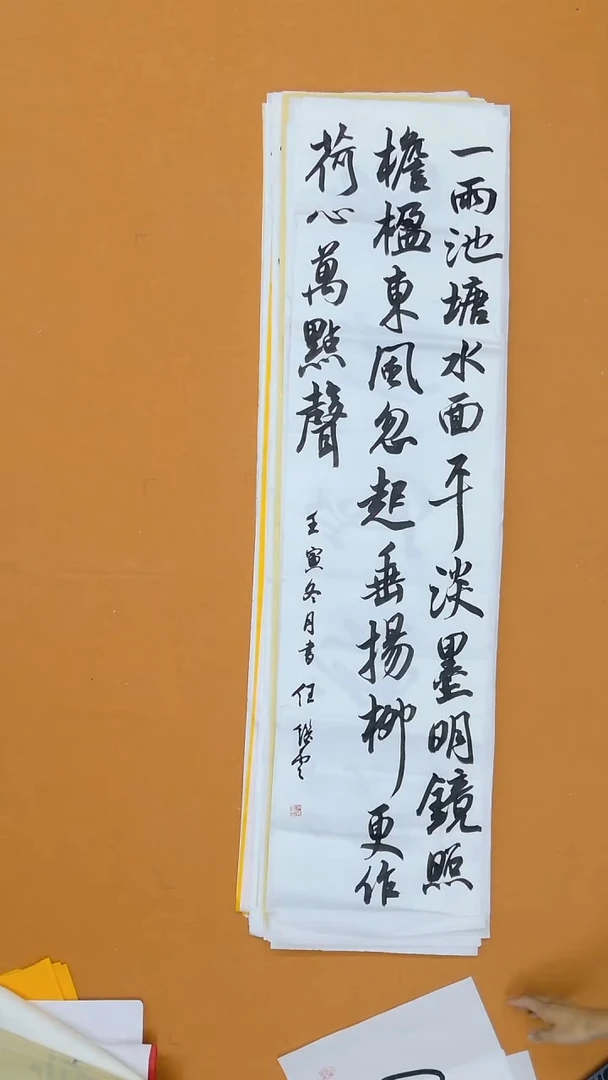 一雨池塘水面平淡墨明鏡照
檐楹東風忽起垂揚柳更作
荷心萬點聲
壬寅冬月書 任